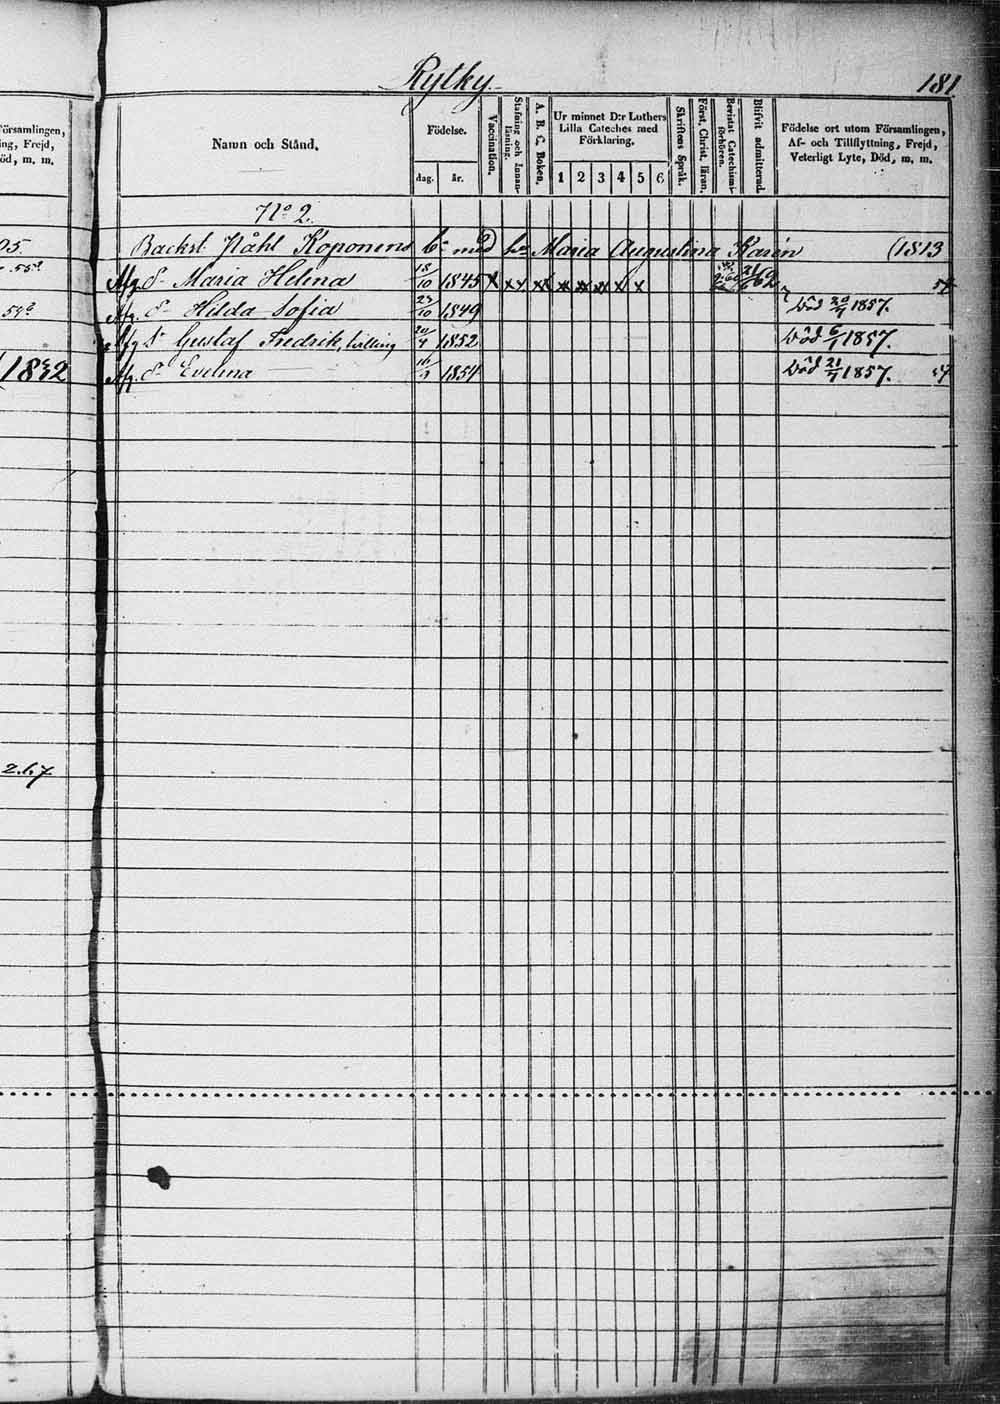 Rytky.
181
örsamlingen,
ng, Frejd,
öd, m. m.
Namn och Stånd.
Födelse.
dag. år.
Vaccination.
Stafning och Innan-
läsning.
A. B. C. Boken.
Ur minnet D:r Luthers
Lilla Cateches med
Förklaring.
1 2 3 4 5 6
Skriftens Språk.
Först. Christ. läran.
Bevistat Catechismi-
förhören.
Blifvit admitterad.
Födelse ort utom Församlingen,
Af- och Tillflyttning, Frejd,
Veterligt Lyte, Död, m. m.
No 2.
Backst. Påhl Koponens b: med hu Maria Augustina Karin (1813
Afg. d- Maria Helena 18/10 1845 x x x x x x x x x x
Afg. d- Hilda Sofia 23/10 1849 Död 20/7 1857.
Afg S Gustaf Fredrik, tvilling 20/4 1852 Död 6/1 1857.
Afg. d- Evelina 16/3 1854 Död 21/7 1857.
05.
1832
2.67